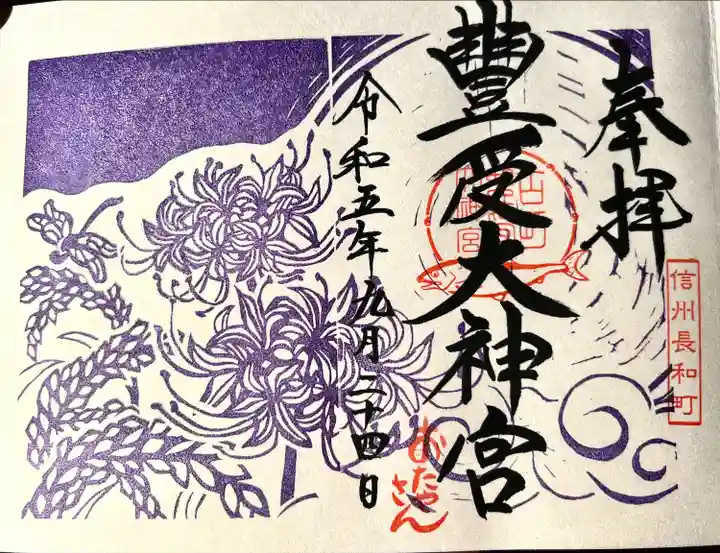 奉拝
豊受大神宮
令和五年九月二十四日
信州長和町
おたやさん